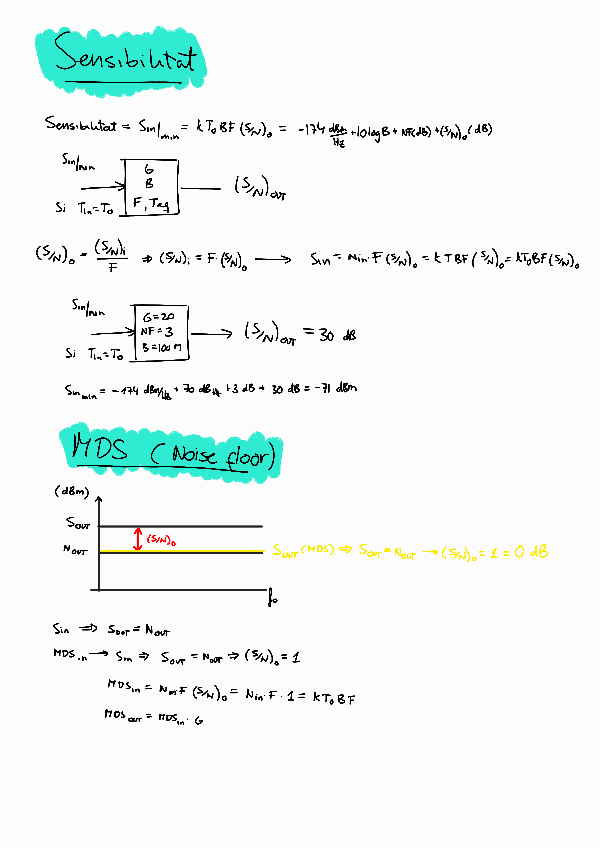 Sensibilitat
Sensibilitat = Sin/min = kT₀BF(S/N)₀ = -174 dBm/Hz + 10logB + NF(dB) + (S/N)₀(dB)
Sin/min
G
B
F, Teq
(S/N)OUT
Si Tin=T₀
(S/N)₀ = (S/N)i / F ⇒ (S/N)i = F·(S/N)₀ → Sin = Nin·F(S/N)₀ = kTBF(S/N)₀ = kT₀BF(S/N)₀
Sin/min
G=20
NF=3
B=100M
(S/N)OUT = 30 dB
Si Tin=T₀
Sin min = -174 dBm/Hz + 70 dBHz + 3 dB + 30 dB = -71 dBm
MDS (Noise floor)
(dBm)
SOUT
(S/N)₀
NOUT
SOUT(MDS) ⇒ SOUT = NOUT → (S/N)₀ = 1 = 0 dB
f₀
Sin ⇒ SOUT = NOUT
MDSin → Sin ⇒ SOUT = NOUT ⇒ (S/N)₀ = 1
MDSin = NinF(S/N)₀ = Nin·F·1 = kT₀BF
MDSOUT = MDSin·G